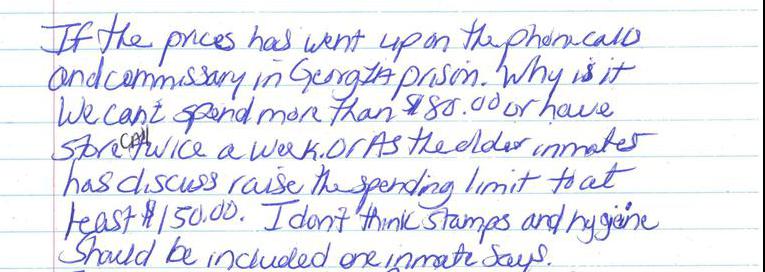 If the prices has went up on the phone calls
and commissary in Georgia prison. Why is it
We cant spend more than $80.00 or have
store call twice a week. Or As the older inmates
has discuss raise the spending limit to at
least $150.00. I don't think stamps and hygiene
Should be included one inmate says.